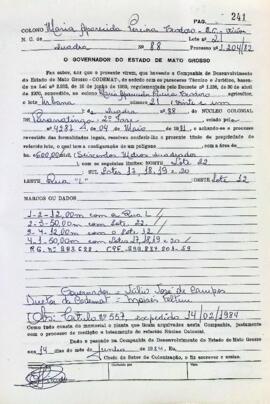 PAG. 241
COLONO Maria Aparecida Pereira Cardoso
N. C. de Lote nº 21
Quadra nº 88 Processo nº 1.204/82
O GOVERNADOR DO ESTADO DE MATO GROSSO
Faz saber, aos que o presente virem, que houve a Companhia de Desenvolvimento
do Estado de Mato Grosso - CODEMAT, de acordo com os pareceres Técnico e Jurídico, baseado
de 1970, a Maria Aparecida Pereira Cardoso, agricultor,
o lote Urbano número 21 (vinte e um)
da quadra nº 88 DO NÚCLEO COLONIAL
Paranatinga - 2ª Fase criado pela
nº 4287 de 04 de Maio de 1981, e achando-se o processo
revestido das formalidades legais, resolveu conferir-lhe o presente título de propriedade do
referido lote, o qual tem a configuração de um polígono com a área de
600,00 (Seiscentos Metros Quadrados)
com os seguintes limites: NORTE Lote 22
SUL Lotes 17, 18, 19 e 20
LESTE Rua "L" OESTE Lote 12
MARCOS OU DADOS
1-2-12,00m com a Rua L
2-3-50,00m com Lote 22
3-4-12,00m com o Lote 12
4-1-50,00m com Lotes 17, 18, 19 e 20
Governador = Júlio José de Campos
Diretor da Codemat = Moisés Feltrin
Obs: Título nº 557, expedido 14/02/1984
Como tudo consta do memorial e planta que ficam arquivados nesta Companhia, juntamente
com o processo de medição e loteamento do referido Núcleo Colonial.
Dado e passado na Companhia de Desenvolvimento do Estado de Mato Grosso
aos 14 dias do mês de Junho de 1984.
Chefe do Setor de Colonização, o fiz escrever e assino.